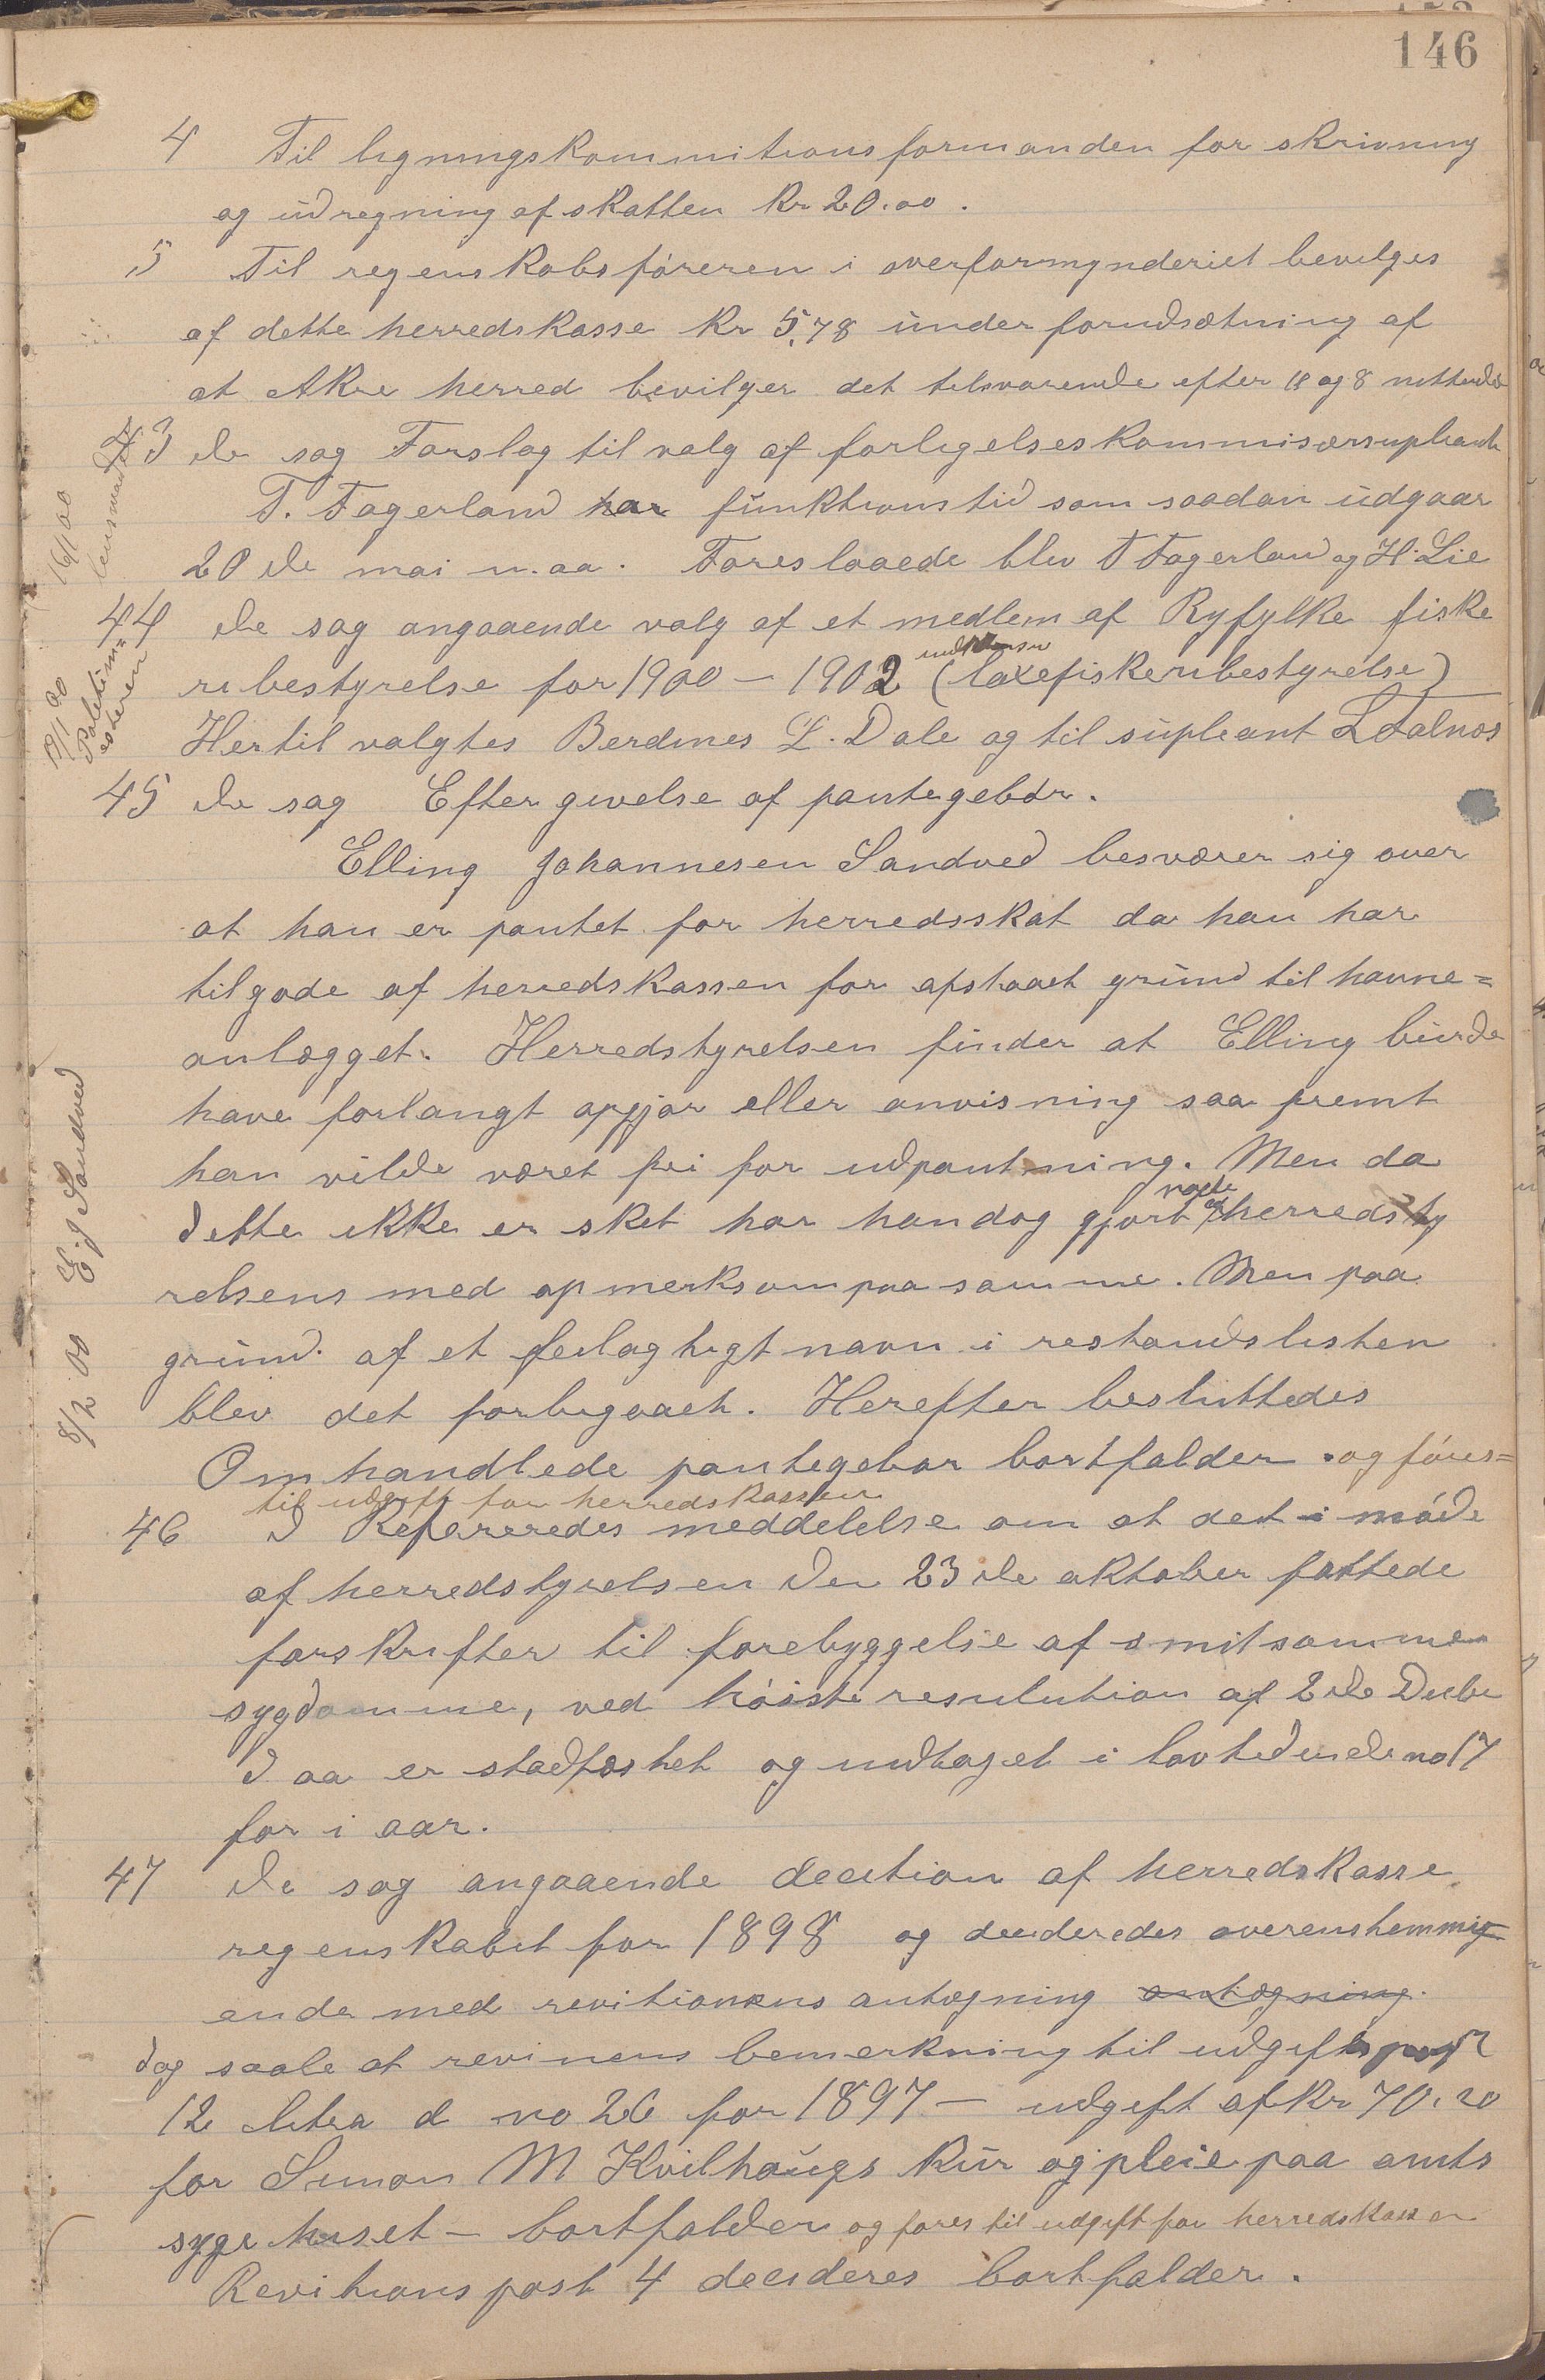 146
4 Til ligningskommitionsformanden for skrivning
og udregning af skatten Kr 20.00.
5 Til regenskabsføreren i overformynderiet bevilges
af dette herredskasse Kr 5,78 under forudsætning af
at Akre herred bevilger det tilsvarende efter 18 og 8
43 de sag Forslag til valg af forligelseskommisærsupleant
T. Fagerland har funktionstid som saadan udgaar
20 de mai n.aa. Foreslaaede blev T Fagerland og H. Lie
16/1 00 lensmand
44 de sag angaaende valg af et medlem af Ryfylke fiske
ribestyrelse for 1900 – 1902 (laxefiskeribestyrelse)
Hertil valgtes Berdines L. Dale og til supleant L Falnes
19/1 00 Politim=
esteren
45 de sag Eftergivelse af pantegebør.
Elling Johannesen Sandved besværer sig over
at han er pantet for herredsskat da han har
tilgode af herredskassen for afstaaet grund til havne=
anlægget. Herredstyrelsen finder at Elling burde
have forlangt opgjør eller anvisning saa fremt
han vilde været fri for udpantning. Men da
dette ikke er sket har han dog gjort herredsty
relsens med opmerksom paa samme. Men paa
grund af et feilagtigt navn i restandslisten
blev det forbigaaet. Herefter besluttedes
Omhandlede pantegebør bortfalder og føres=
til udgift for herredskassen
8/2 00 E. J Sandved
46 Refereredes meddelelse om at det i møde
af herredstyrelsen den 23 de oktober fattede
forskrifter til forebyggelse af smitsomme
sygdomme, ved høiste resulution af 2 de Decbr
d aa er stadfæstet og indtaget i lovtidende no 17
for i aar.
47 de sag angaaende decition af herredskasse
regenskabet for 1898 og decideredes overenstemmig
ende med revitionens antegning antegning.
dog saale at revinens bemerkning til udgifts post
12 litra d no 26 for 1897 – udgift af Kr 70.20
for Simon M Kvilhaugs Kur og pleie paa amts
sygehuset – bortfalder og føres til udgift for herredskassen
Revitions post 4 decideres bortfalder.